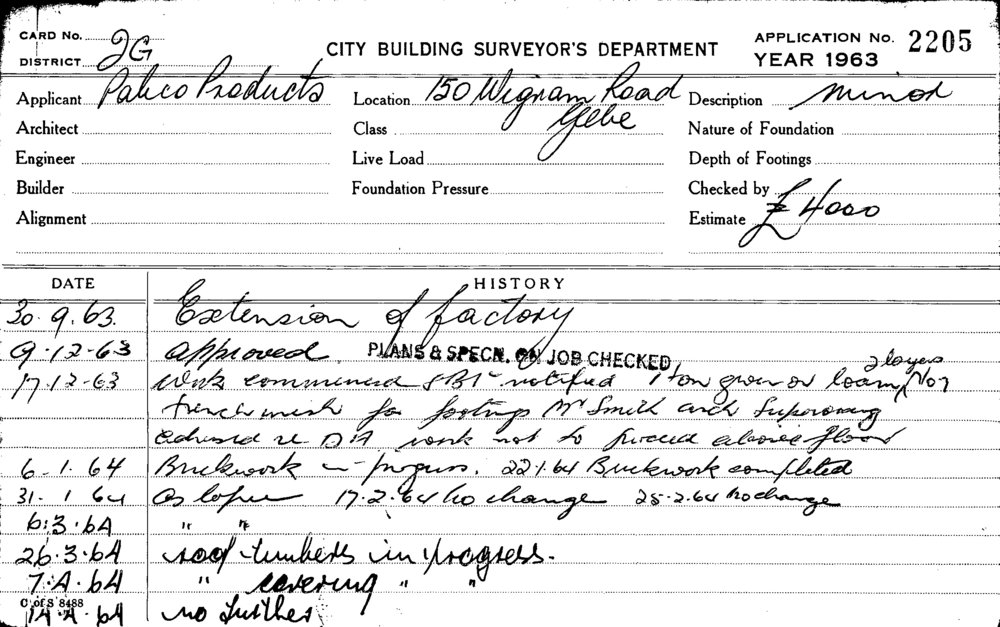 CARD No. 2G
DISTRICT
CITY BUILDING SURVEYOR'S DEPARTMENT
APPLICATION No. 2205
YEAR 1963
Applicant Products Location 150 Wigram Road Description minor
Architect Class Glebe Nature of Foundation
Engineer Live Load Depth of Footings
Builder Foundation Pressure Checked by
Alignment Estimate £ 4000
DATE HISTORY
30.9.63. Extension of factory
9.12.63 approved PLANS & SPECN. ON JOB CHECKED
2 layers
17.12.63 Work commenced notified 1 ton on loam, No 7
trench mesh for footings Mr Smith arch
advised re work not to proceed above floor
6.1.64 Brickwork in progress. 22.1.64 Brickwork completed
31.1.64 As before 17.2.64 No change 25.2.64 No change
6.3.64 " "
26.3.64 roof timbers in progress.
7.4.64 " covering " "
C of S 8488
14.4.64 no further